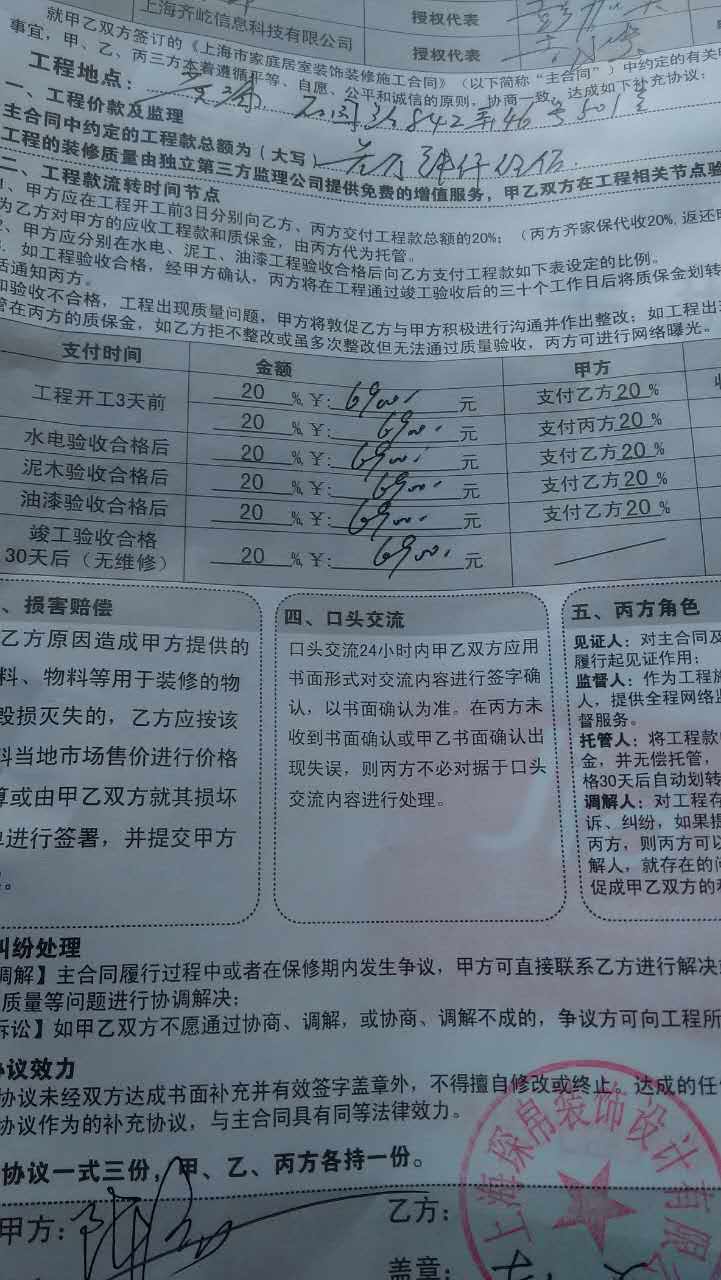 上海齐屹信息科技有限公司
授权代表
授权代表
就甲乙双方签订的《上海市家庭居室装饰装修施工合同》（以下简称“主合同”）中约定的有关
事宜，甲、乙、丙三方本着遵循平等、自愿、公平和诚信的原则，协商一致，达成如下补充协议：
工程地点：
842弄46号501室
一、工程价款及监理
主合同中约定的工程款总额为（大写）
工程的装修质量由独立第三方监理公司提供免费的增值服务，甲乙双方在工程相关节点验
二、工程款流转时间节点
1、甲方应在工程开工前3日分别向乙方、丙方交付工程款总额的20%；（丙方齐家保代收20%，返还时
为乙方对甲方的应收工程款和质保金，由丙方代为托管。
2、甲方应分别在水电、泥工、油漆工程验收合格后向乙方支付工程款如下表设定的比例。
3、如工程验收合格，经甲方确认，丙方将在工程通过竣工验收后的三十个工作日后将质保金划转
话通知丙方。
如验收不合格，工程出现质量问题，甲方将敦促乙方与甲方积极进行沟通并作出整改；如工程出
管在丙方的质保金，如乙方拒不整改或虽多次整改但无法通过质量验收，丙方可进行网络曝光。
支付时间 金额 甲方
工程开工3天前 20 % ￥：6900. 元 支付乙方20 %
20 % ￥：6900. 元 支付丙方20 %
水电验收合格后 20 % ￥：6900. 元 支付乙方20 %
泥木验收合格后 20 % ￥：6900. 元 支付乙方20 %
油漆验收合格后 20 % ￥：6900. 元 支付乙方20 %
竣工验收合格
30天后（无维修） 20 % ￥：6900. 元
、损害赔偿
乙方原因造成甲方提供的
料、物料等用于装修的物
毁损灭失的，乙方应按该
料当地市场售价进行价格
算或由甲乙双方就其损坏
进行签署，并提交甲方
。
四、口头交流
口头交流24小时内甲乙双方应用
书面形式对交流内容进行签字确
认，以书面确认为准。在丙方未
收到书面确认或甲乙书面确认出
现失误，则丙方不必对据于口头
交流内容进行处理。
五、丙方角色
见证人：对主合同及
履行起见证作用；
监督人：作为工程施
人，提供全程网络监
督服务。
托管人：将工程款
金，并无偿托管，
格30天后自动划转
调解人：对工程存
诉、纠纷，如果提
丙方，则丙方可以
解人，就存在的问
促成甲乙双方的和
纠纷处理
调解】主合同履行过程中或者在保修期内发生争议，甲方可直接联系乙方进行解决
质量等问题进行协调解决；
诉讼】如甲乙双方不愿通过协商、调解，或协商、调解不成的，争议方可向工程所
协议效力
协议未经双方达成书面补充并有效签字盖章外，不得擅自修改或终止。达成的任
协议作为的补充协议，与主合同具有同等法律效力。
协议一式三份，甲、乙、丙方各持一份。
甲方：
乙方：
盖章：
上海琛帛装饰设计有限公